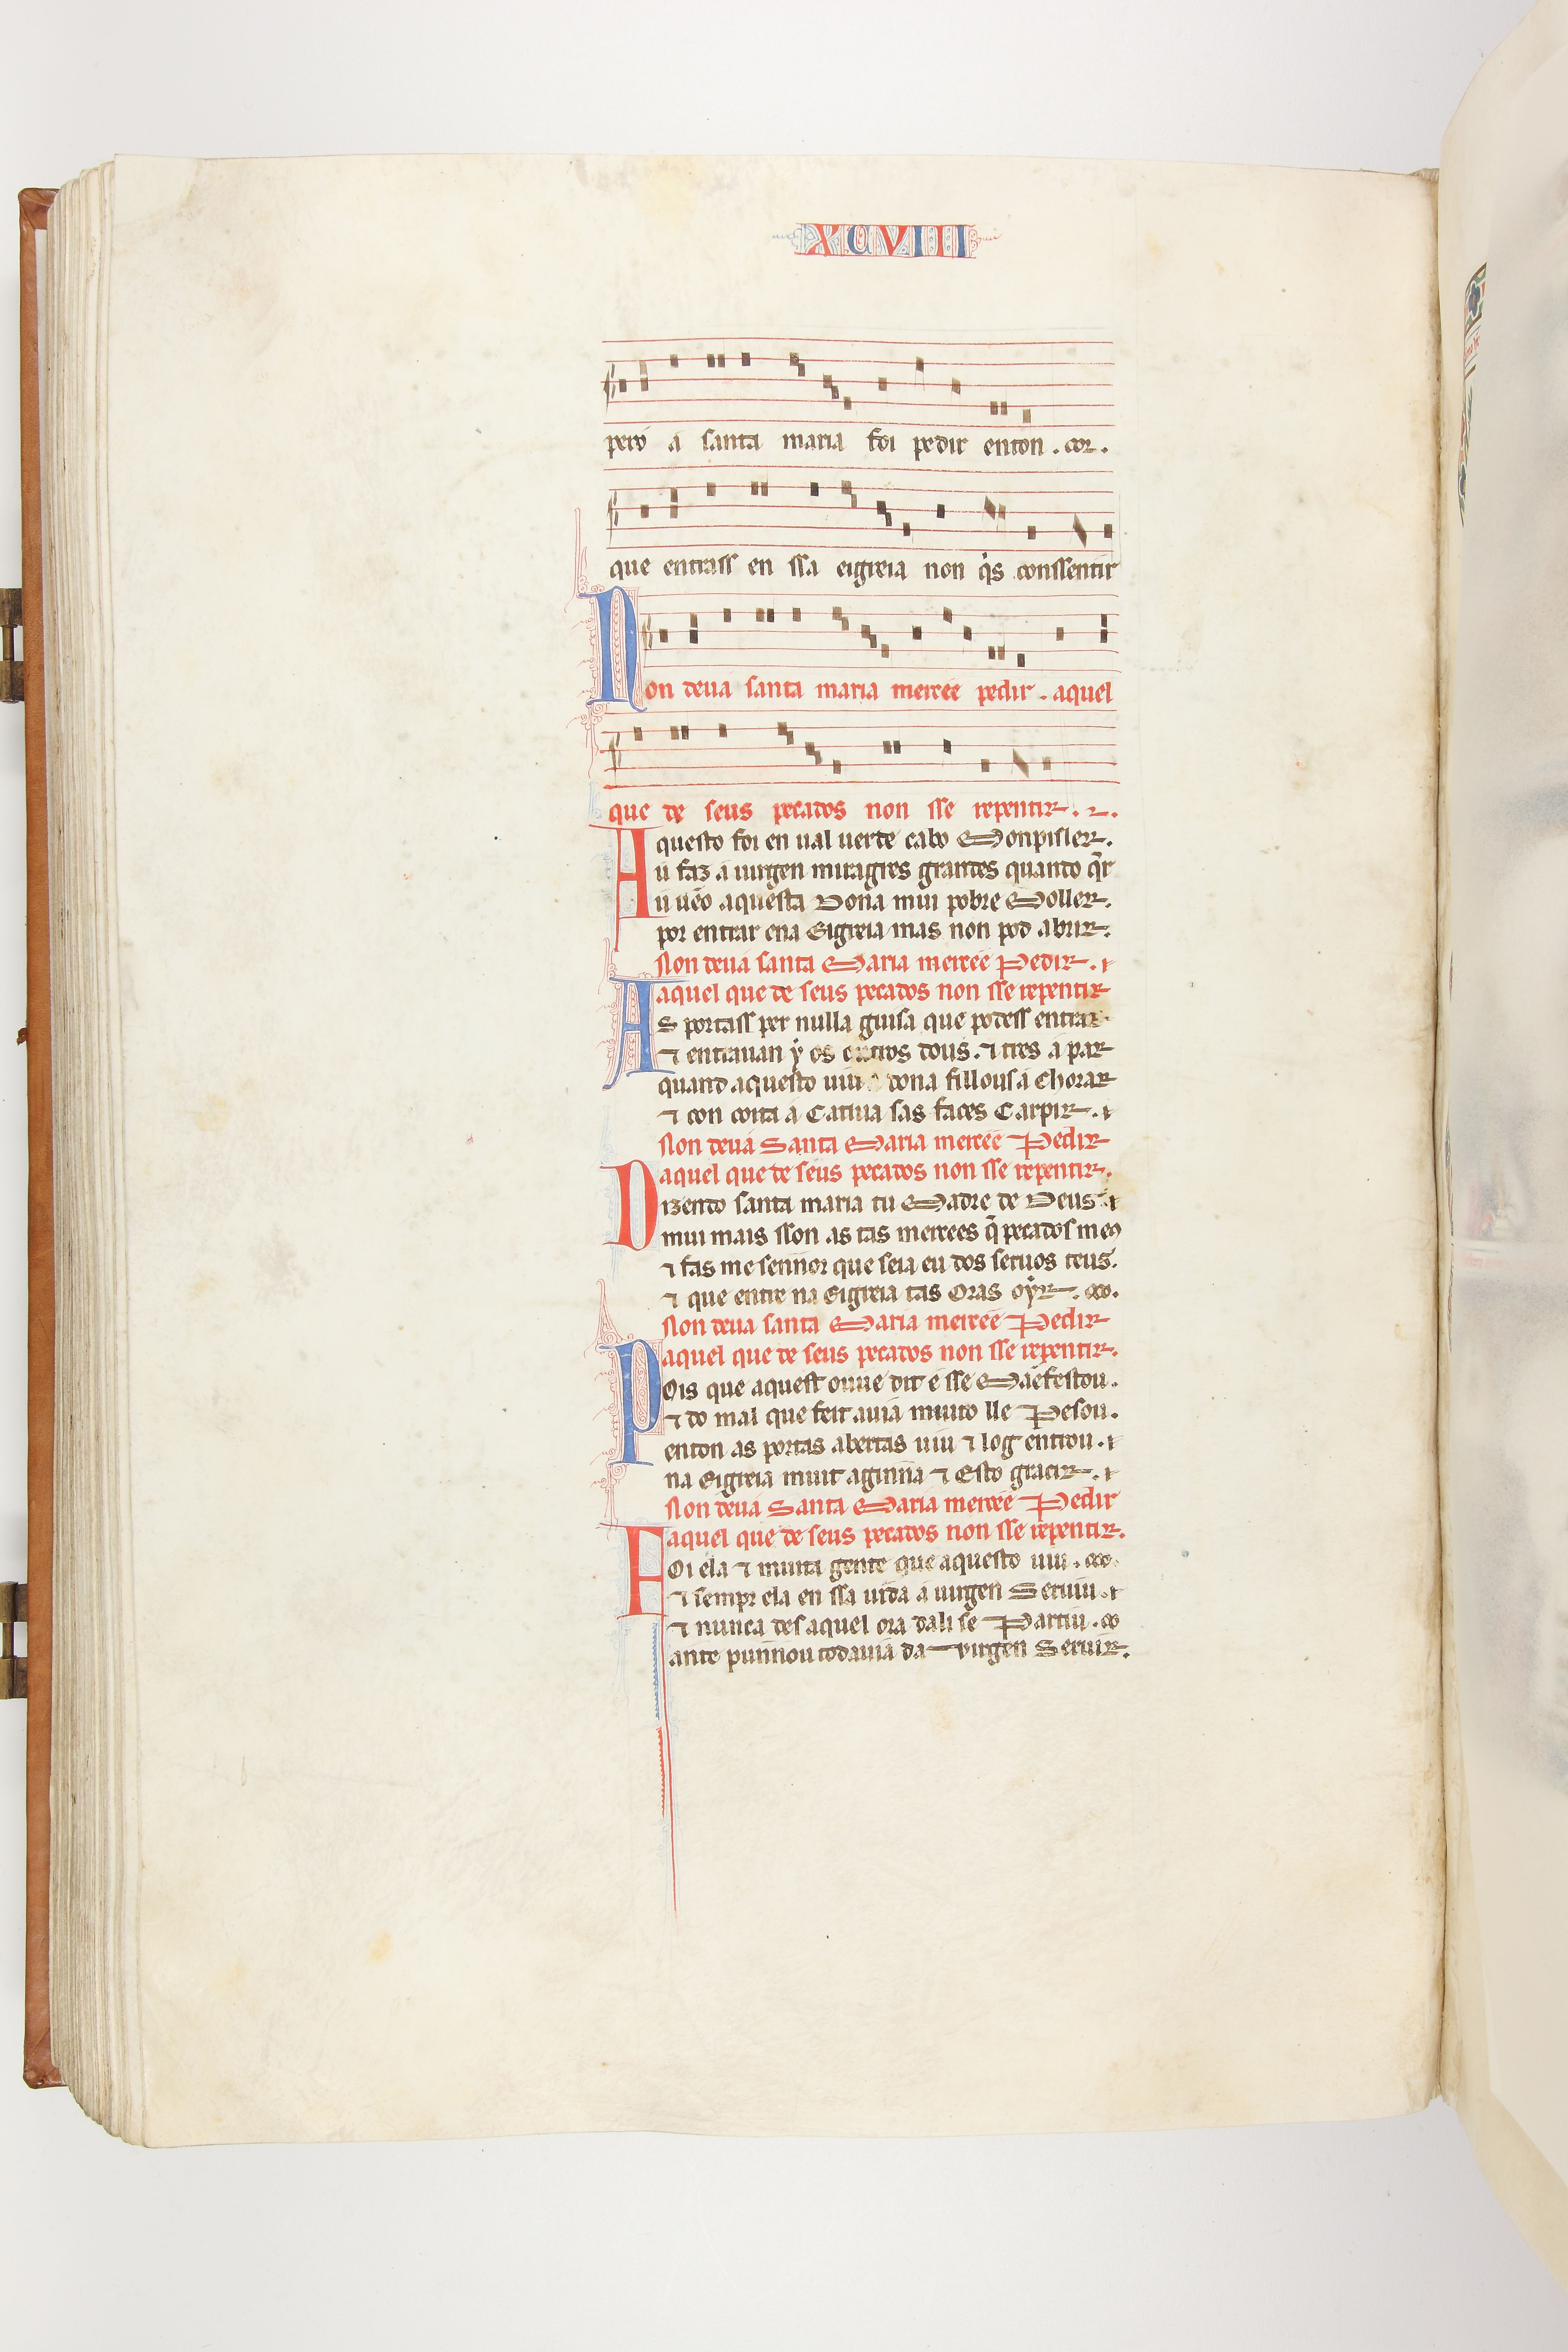 XCVIII
pero a santa maria foi pedir enton . cor .
que entrass en ssa eigreia non q̇s conssentir
Non deua santa maria mercée pedir . aquel
que de seus pecados non sse repentir . 
Aquesto foi en ual uerde cabo Monpisler .
u faz a uirgen miragres grandes quando q̄r
u uẽo aquesta Dona mui pobre Moller .
por entrar ena Eigreia mas non pod abrir .
Non deua santa Maria mercée Pedir .
aquel que de seus pecados non sse repentir
As portass per nulla guisa que podess entrar
⁊ entrauan ẏ os outros dous . ⁊ tres a par
quand aquesto uiu dona fillousa Chorar
⁊ con coita a Catiua sas faces Carpir .
Non deua Santa Maria mercée Pedir
aquel que de seus pecados non sse repentir .
Dizendo santa maria tu Madre de Deus
mui mais sson as tas mercees q̄ pecados meus
⁊ fas me sennor que seia eu dos seruos teus .
⁊ que entre na Eigreia tas Oras oẏr .
Non deua santa Maria mercée Pedir
aquel que de seus pecados non sse repentir .
Pois que aquest ouue dit e sse Mãefestou .
⁊ do mal que feit auia muito lle Pesou .
enton as portas abertas uiu ⁊ log entrou .
na Eigreia muit aginna ⁊ Esto gracir .
Non deua Santa Maria mercée Pedir
aquel que de seus pecados non sse repentir .
Foi ela ⁊ muita gente que aquesto uiu .
⁊ sempr ela en ssa uida a uirgen Seruiu .
⁊ nunca des aquel ora dali se Partiu .
ante punnou todauia da uirgen Seruir .